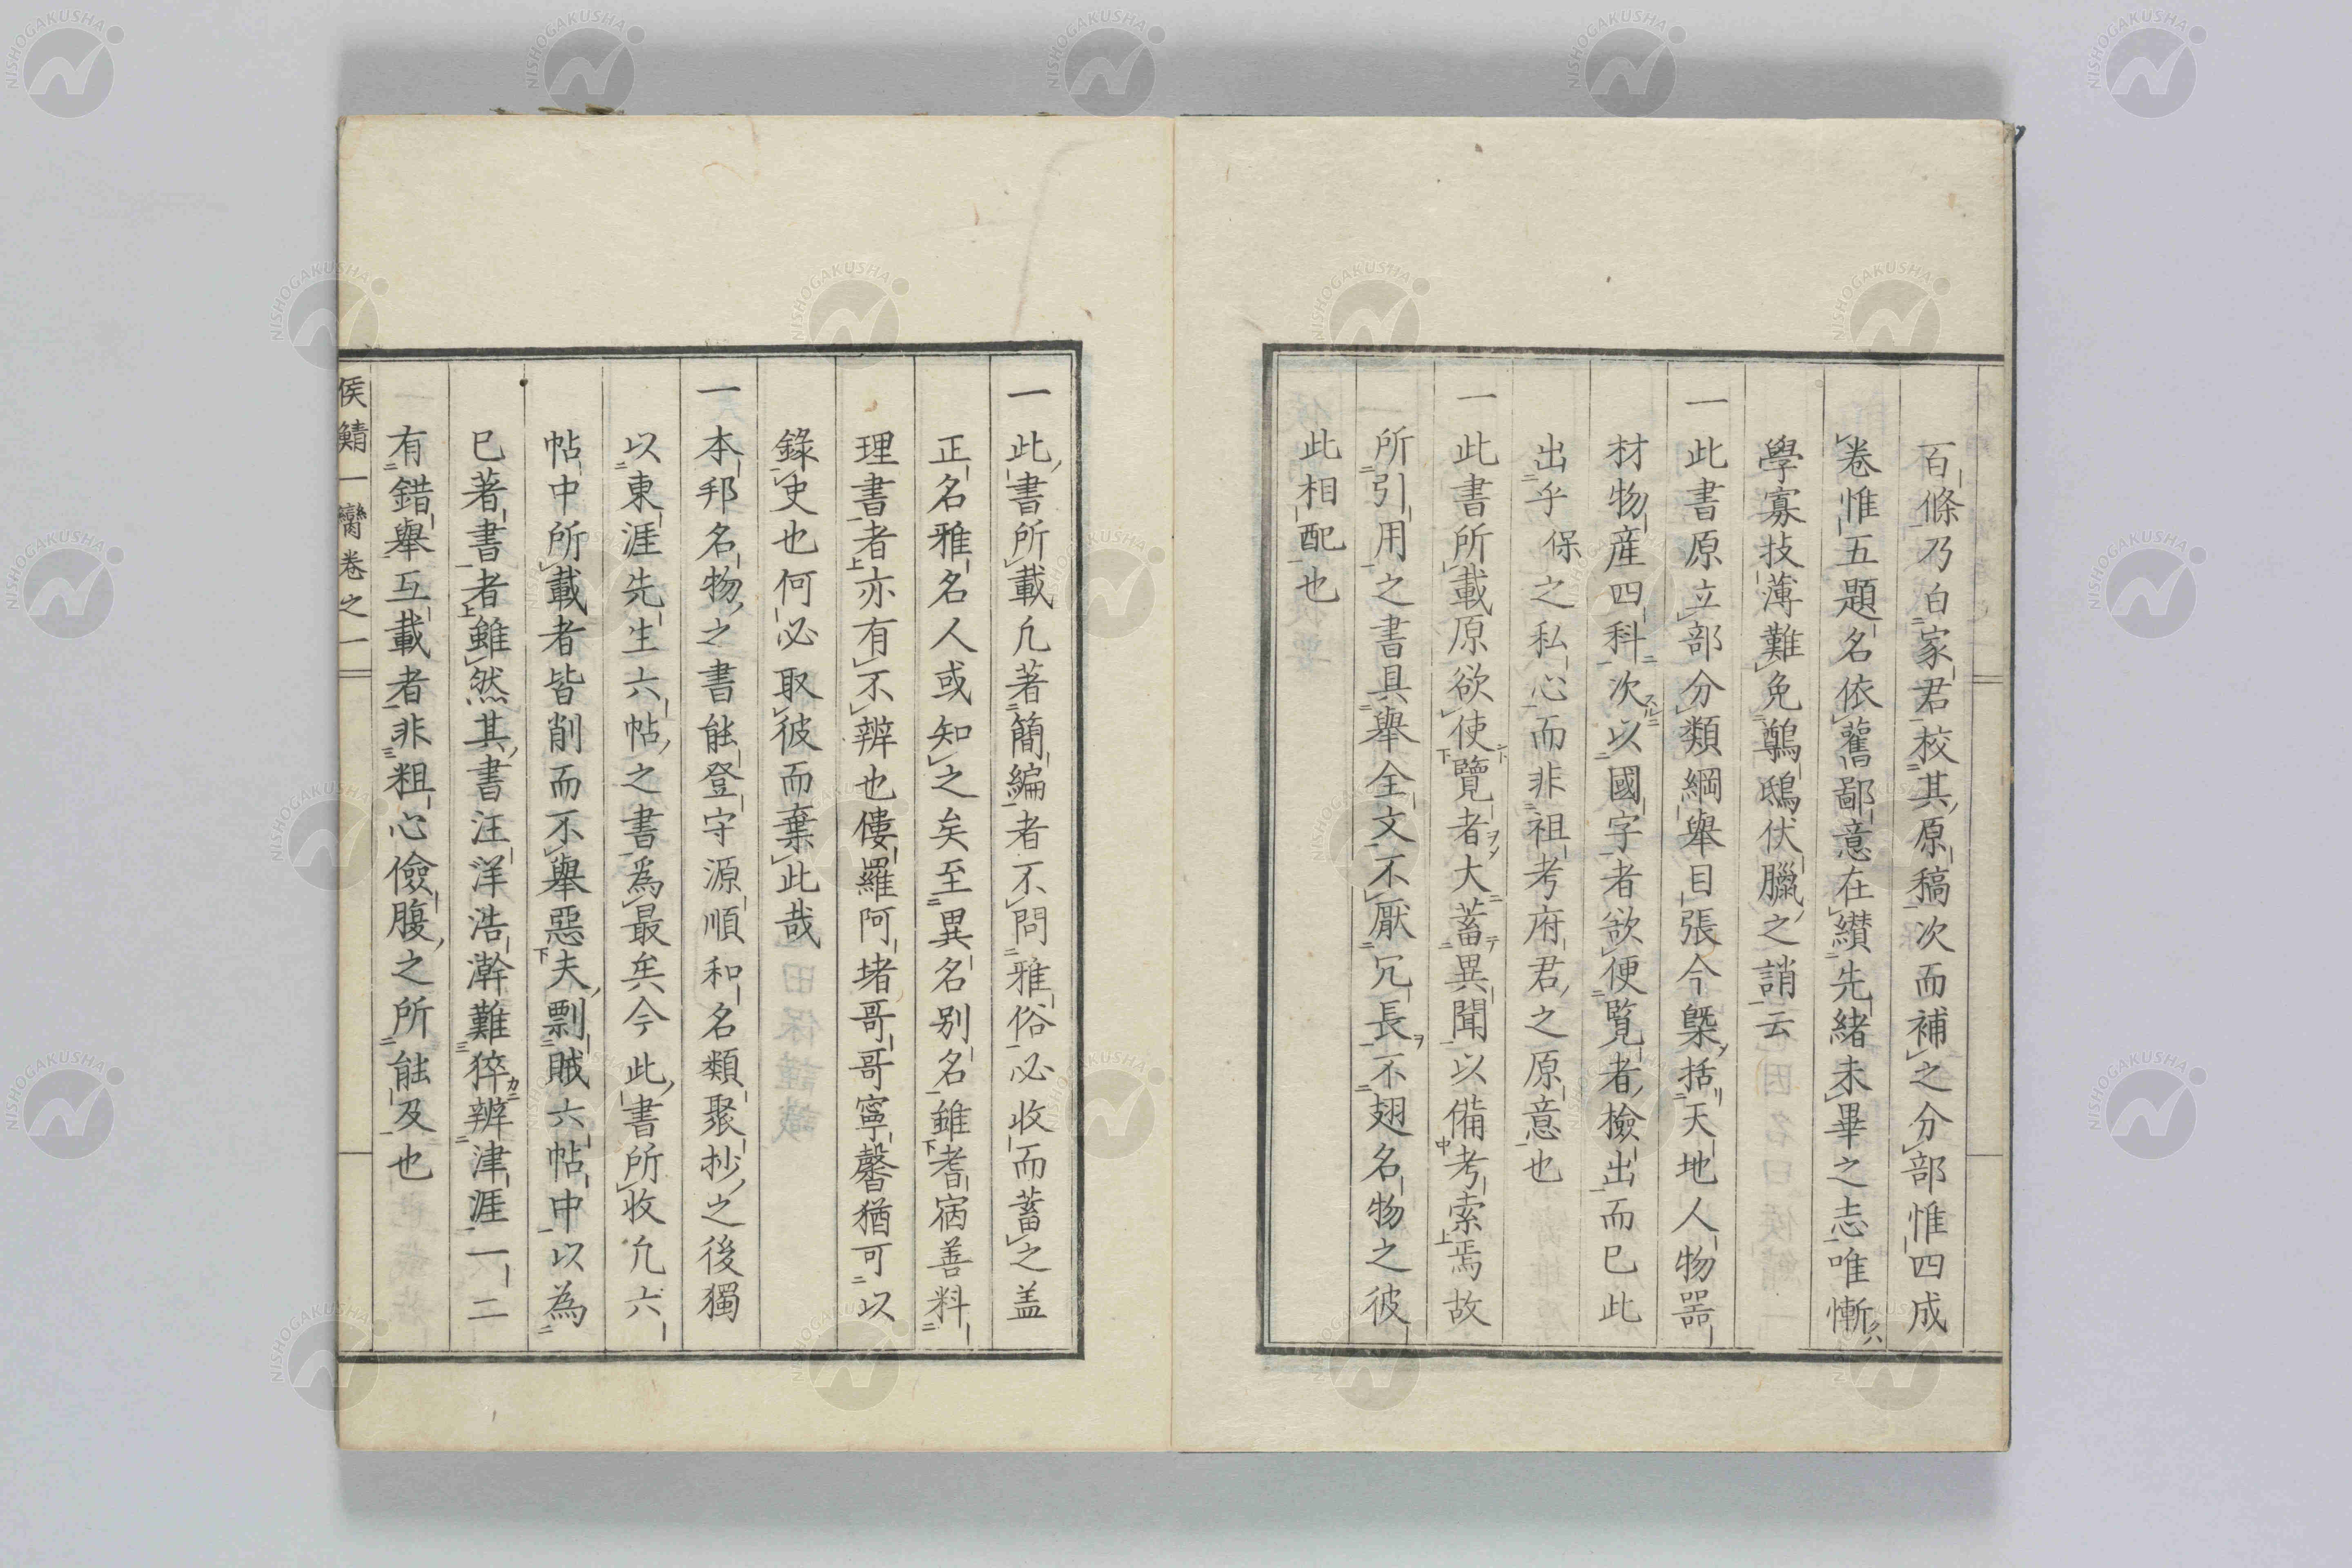 百條乃白家君校其原稿次而補之分部惟四成
卷惟五題名依舊鄙意在纉先緒未畢之志唯慚
學寡技薄難免鷯鴟伏臘之誚云
一此書原立部分類綱舉目張今槩括天地人物器
材物産四科次以國字者欲便覧者檢出而已此
出乎保之私心而非祖考府君之原意也
一此書所載原欲使覽者大蓄異聞以備考索焉故
所引用之書具舉全文不厭冗長不翅名物之彼
此相配也
一此書所載凢著簡編者不問雅俗必收而蓄之盖
正名雅名人或知之矣至異名别名雖耆宿善料
理書者亦有不辨也僂羅阿堵哥哥寧馨猶可以
錄史也何必取彼而棄此哉
一本邦名物之書能登守源順和名類聚抄之後獨
以東涯先生六帖之書爲最矣今此書所收凢六
帖中所載者皆削而不舉惡夫剽賊六帖中以為
已著書者雖然其書汪洋浩瀚難猝辨津涯一二
有錯舉互載者非粗心儉腹之所能及也
侯鯖一臠卷之一
NISHOGAKUSHA